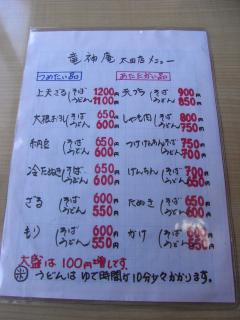 竜神庵 太田店メニュー
つめたい品
上天ざる(そば 1200円
うどん 1100円
大根おろし(そば 650円
うどん 600円
納豆(そば 650円
うどん 600円
冷たぬき(そば 650円
うどん 600円
ざる(そば 600円
うどん 550円
もり(そば 600円
うどん 550円
あたたかい品
天プラ(そば 900円
うどん 850円
しゃも肉(そば 800円
うどん 750円
つけけんちん(そば 750円
うどん 700円
けんちん(そば 700円
うどん 650円
たぬき(そば 650円
うどん 600円
かけ(そば 600円
うどん 550円
大盛は100円増しです。
うどんはゆで時間が10分少々かかります。